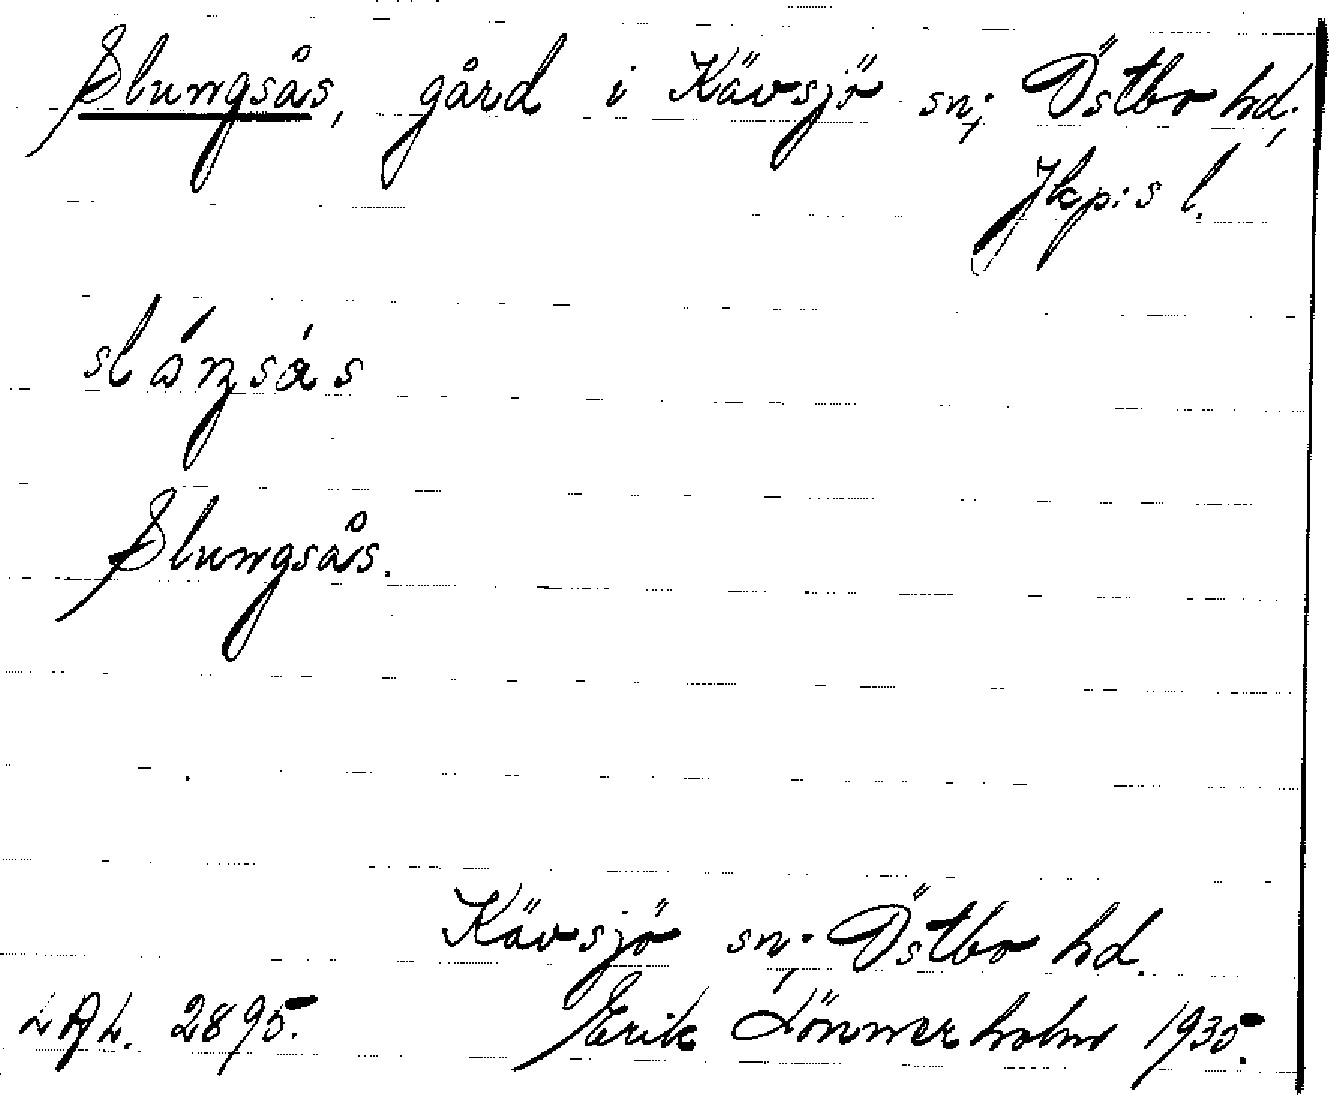 Slungsås, gård i Kävsjö sn; Östbo hd;
Jkp:s l.
slóŋsás
Slungsås.
Kävsjö sn; Östbo hd.
LAL. 2895. Erik Lönnerholm 1935.